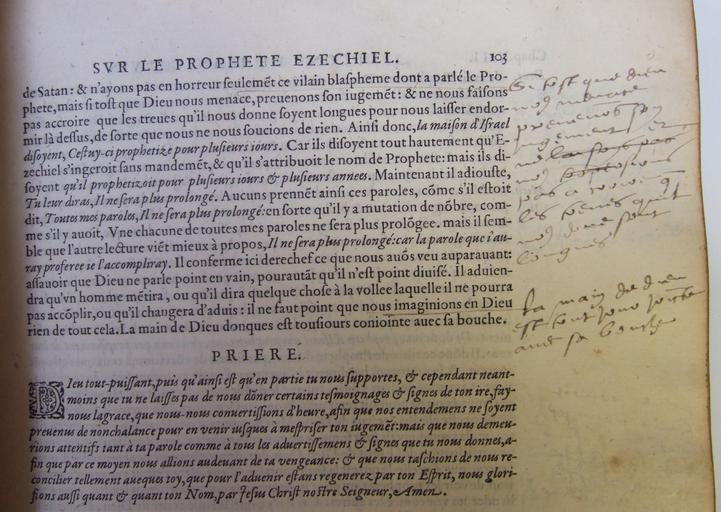 SVR LE PROPHETE EZECHIEL. 103
de Satan: & n'ayons pas en horreur seulemẽt ce vilain blaspheme dont a parlé le Pro-
phete, mais si tost que Dieu nous menace, preuenons son iugemẽt: & ne nous faisons
pas accroire que les treues qu'il nous donne soyent longues pour nous laisser endor-
mir là dessus, de sorte que nous ne nous soucions de rien. Ainsi donc, la maison d'Israel
disoyent, Cestuy-ci prophetize pour plusieurs iours. Car ils disoyent tout hautement qu'E-
zechiel s'ingeroit sans mandemẽt, & qu'il s'attribuoit le nom de Prophete: mais ils di-
soyent qu'il prophetizoit pour plusieurs iours & plusieurs annees. Maintenant il adiouste,
Tu leur diras, Il ne sera plus prolongé. Aucuns prennẽt ainsi ces paroles, cõme s'il estoit
dit, Toutes mes paroles, Il ne sera plus prolongé: en sorte qu'il y a mutation de nõbre, com-
me s'il y auoit, Vne chacune de toutes mes paroles ne sera plus prolõgee. mais il sem-
ble que l'autre lecture viẽt mieux à propos, Il ne sera plus prolongé: car la parole que i'au-
ray proferee ie l'accompliray. Il conferme ici derechef ce que nous auõs veu auparauant:
assauoir que Dieu ne parle point en vain, pourautãt qu'il n'est point diuisé. Il aduien-
dra qu'vn homme mẽtira, ou qu'il dira quelque chose à la vollee laquelle il ne pourra
pas accõplir, ou qu'il changera d'aduis: il ne faut point que nous imaginions en Dieu
rien de tout cela. La main de Dieu donques est tousiours coniointe auec sa bouche.
PRIERE.
DIeu tout-puissant, puis qu'ainsi est qu'en partie tu nous supportes, & cependant neant-
moins que tu ne laisses pas de nous dõner certains tesmoignages & signes de ton ire, fay-
nous la grace, que nous-nous conuertissions d'heure, afin que nos entendemens ne soyent
preuenus de nonchalance pour en venir iusques à mespriser ton iugemẽt: mais que nous demeu-
rions attentifs tant à ta parole comme à tous les aduertissemens & signes que tu nous donnes, a-
fin que par ce moyen nous allions audeuant de ta vengeance: & que nous taschions de nous re-
concilier tellement aueques toy, que pour l'aduenir estans regenerez par ton Esprit, nous glori-
fions aussi quant & quant ton Nom, par Iesus Christ nostre Seigneur, Amen.
Si tost que dieu
nous menace
preuenons son
iugement et
ne
pas
les treues quil
nous donne sont
longues
la main de dieu
est tout jour jointe
auec sa bouche